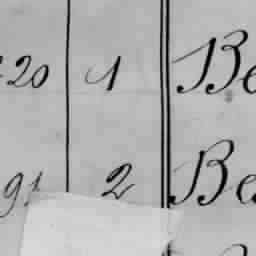 20 1 Be
91 2 Be